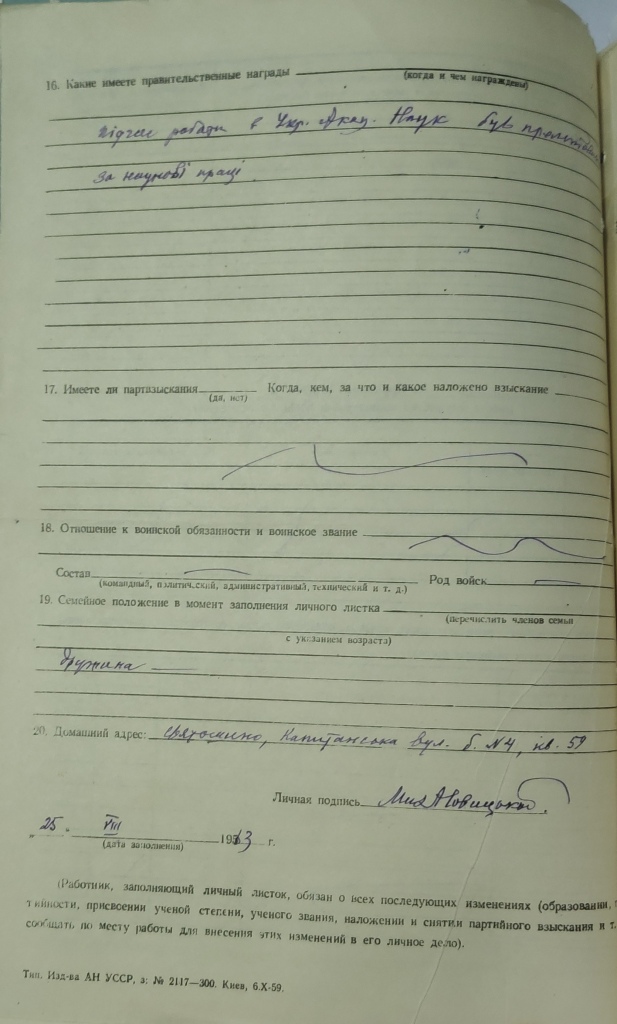 16. Какие имеете правительственные награды
(когда и чем награждены)
Підчас роботи в Укр. Акад. Наук був
за наукові праці.
17. Имеете ли партвзыскания Когда, кем, за что и какое наложено взыскание
(да, нет)
18. Отношение к воинской обязанности и воинское звание
Состав Род войск
(командный, политический, административный, технический и т. д.)
19. Семейное положение в момент заполнения личного листка
(перечислить членов семьи
с указанием возраста)
дружина —
20. Домашний адрес: Святошино, Капітанська вул. б. №4, кв. 59
Личная подпись
„25 „ VIII 1963 г.
(дата заполнения)
(Работник, заполняющий личный листок, обязан о всех последующих изменениях (образовании,
присвоении ученой степени, ученого звания, наложении и снятии партийного взыскания и т.
сообщать по месту работы для внесения этих изменений в его личное дело).
Тип. Изд-ва АН УССР, з: № 2117—300. Киев, 6.X-59.